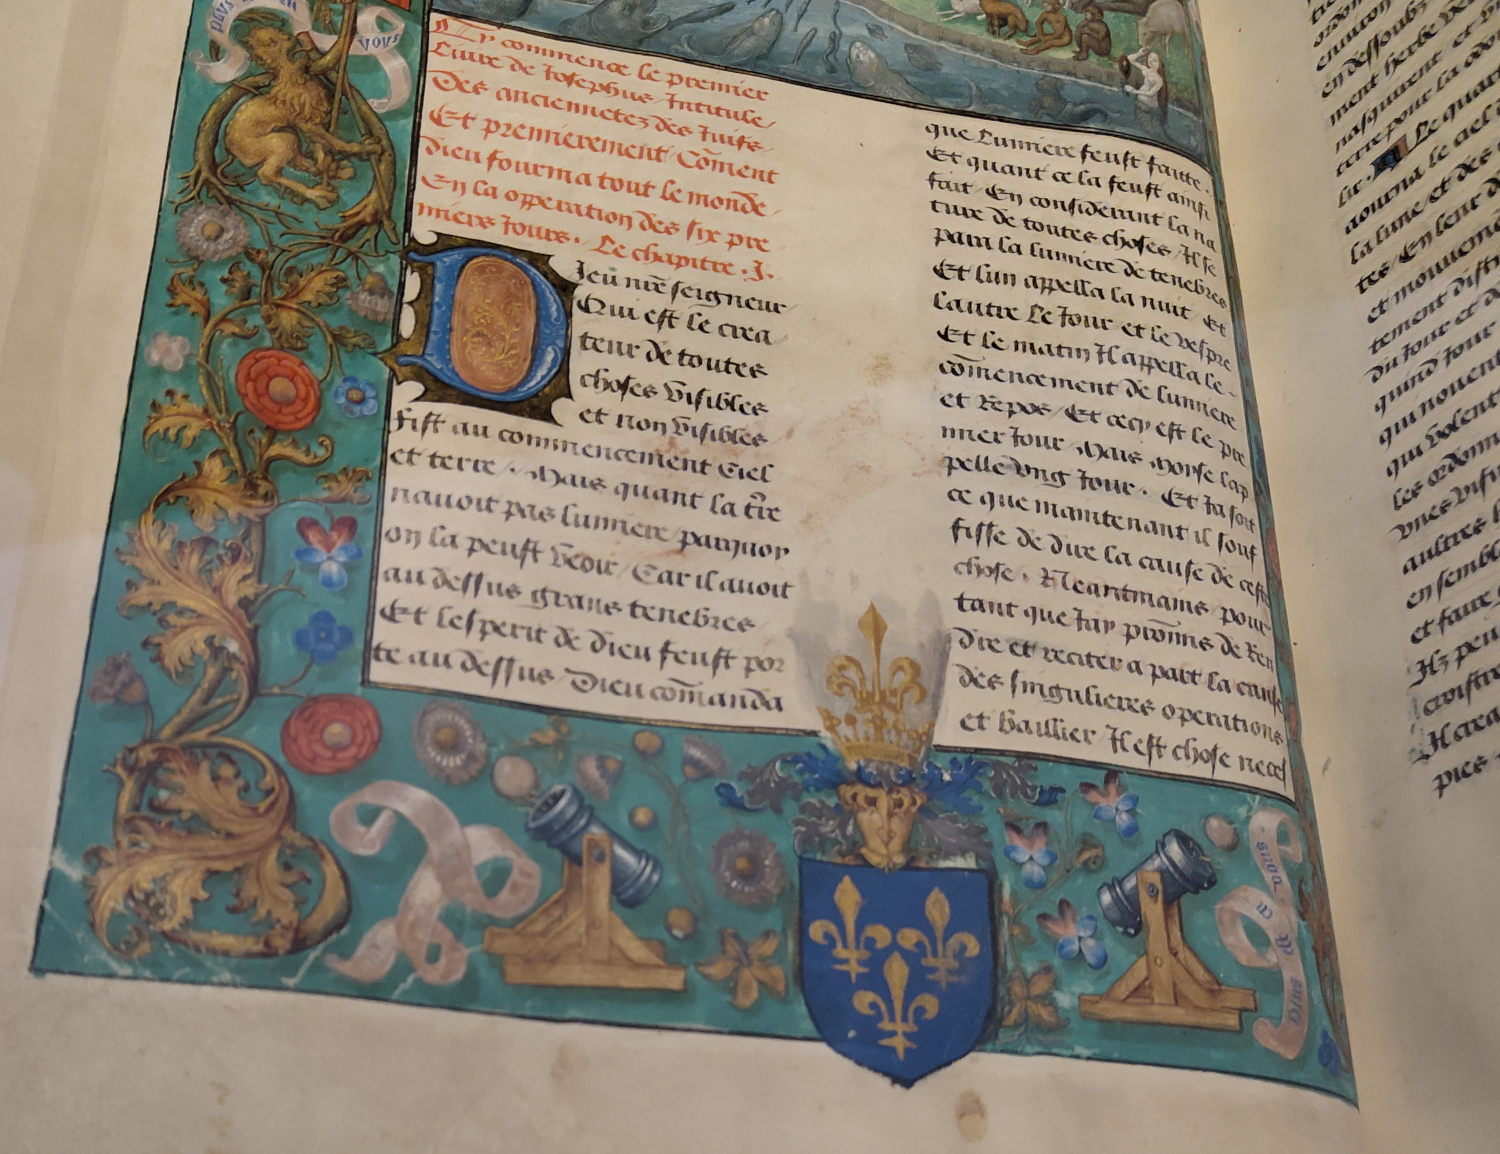 plus
vous
Cy commence le premier
Livre de Josephus Intitule
Des anciennetez des Juifs
Et premierement Cõment
dieu fourma tout le monde
En la opperation des six pre
miers Jours. Le chapitre .I.
Dieu nr̃e seigneur
Qui est le crea
teur de toutes
choses visibles
et non visibles
fist au commencement Ciel
et terre. Mais quant la tr̃e
navoit pas lumiere parquoy
on la peust veoir / Car il avoit
au dessus grans tenebres
Et lesperit de dieu feust por
te au dessus / Dieu cõmanda
que Lumiere feust faitte.
Et quant ce la feust ainsi
fait / En considerant la na
ture de toutes choses / Il se
para la lumiere de tenebres
Et lun appella la nuit Et
lautre Le Jour et le vespre
Et le matin Il appella le
cõmencement de lumiere
et Repos / Et cecy est le pre
mier Jour / Mais Moyse lap
pelle vng Jour. Et Ja soit
ce que maintenant il souf
fisse de dire la cause de ceste
chose. Neantmains pour
tant que Jay promis de Ren
dre et reciter a part la cause
des singulieres operations
et baillier / Il est chose neces
plus
vous
en dessoubz
ment herbe
nasquirent et
terre pour la
Le quart
aourna le ciel
la lune / et des
tes / En leur
et mouvemē
tement disti
du Jour et d
quind Jour
qui nouent
qui volent
les ordonn
aultres
en sembl
et faire
Ilz peu
croistre
Il crea
pies